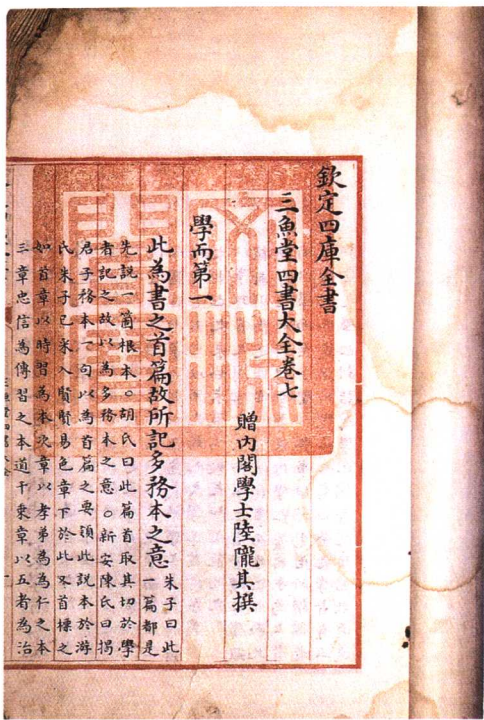 欽定四庫全書
三魚堂四書大全卷七
贈内閣學士陸隴其撰
學而第一
此為書之首篇故所記多務本之意朱子曰此
一篇都是
先說一箇根本○胡氏曰此篇首取其切於學
者記之故以為多務本之意○新安陳氏曰揭
君子務本一句以為首篇之要領此說本於游
氏朱子已采入賢賢易色章下於此又首標之
如首章以時習為本次章以孝弟為為仁之本
三章忠信為傳習之本道千乘章以五者為治
文淵閣寶